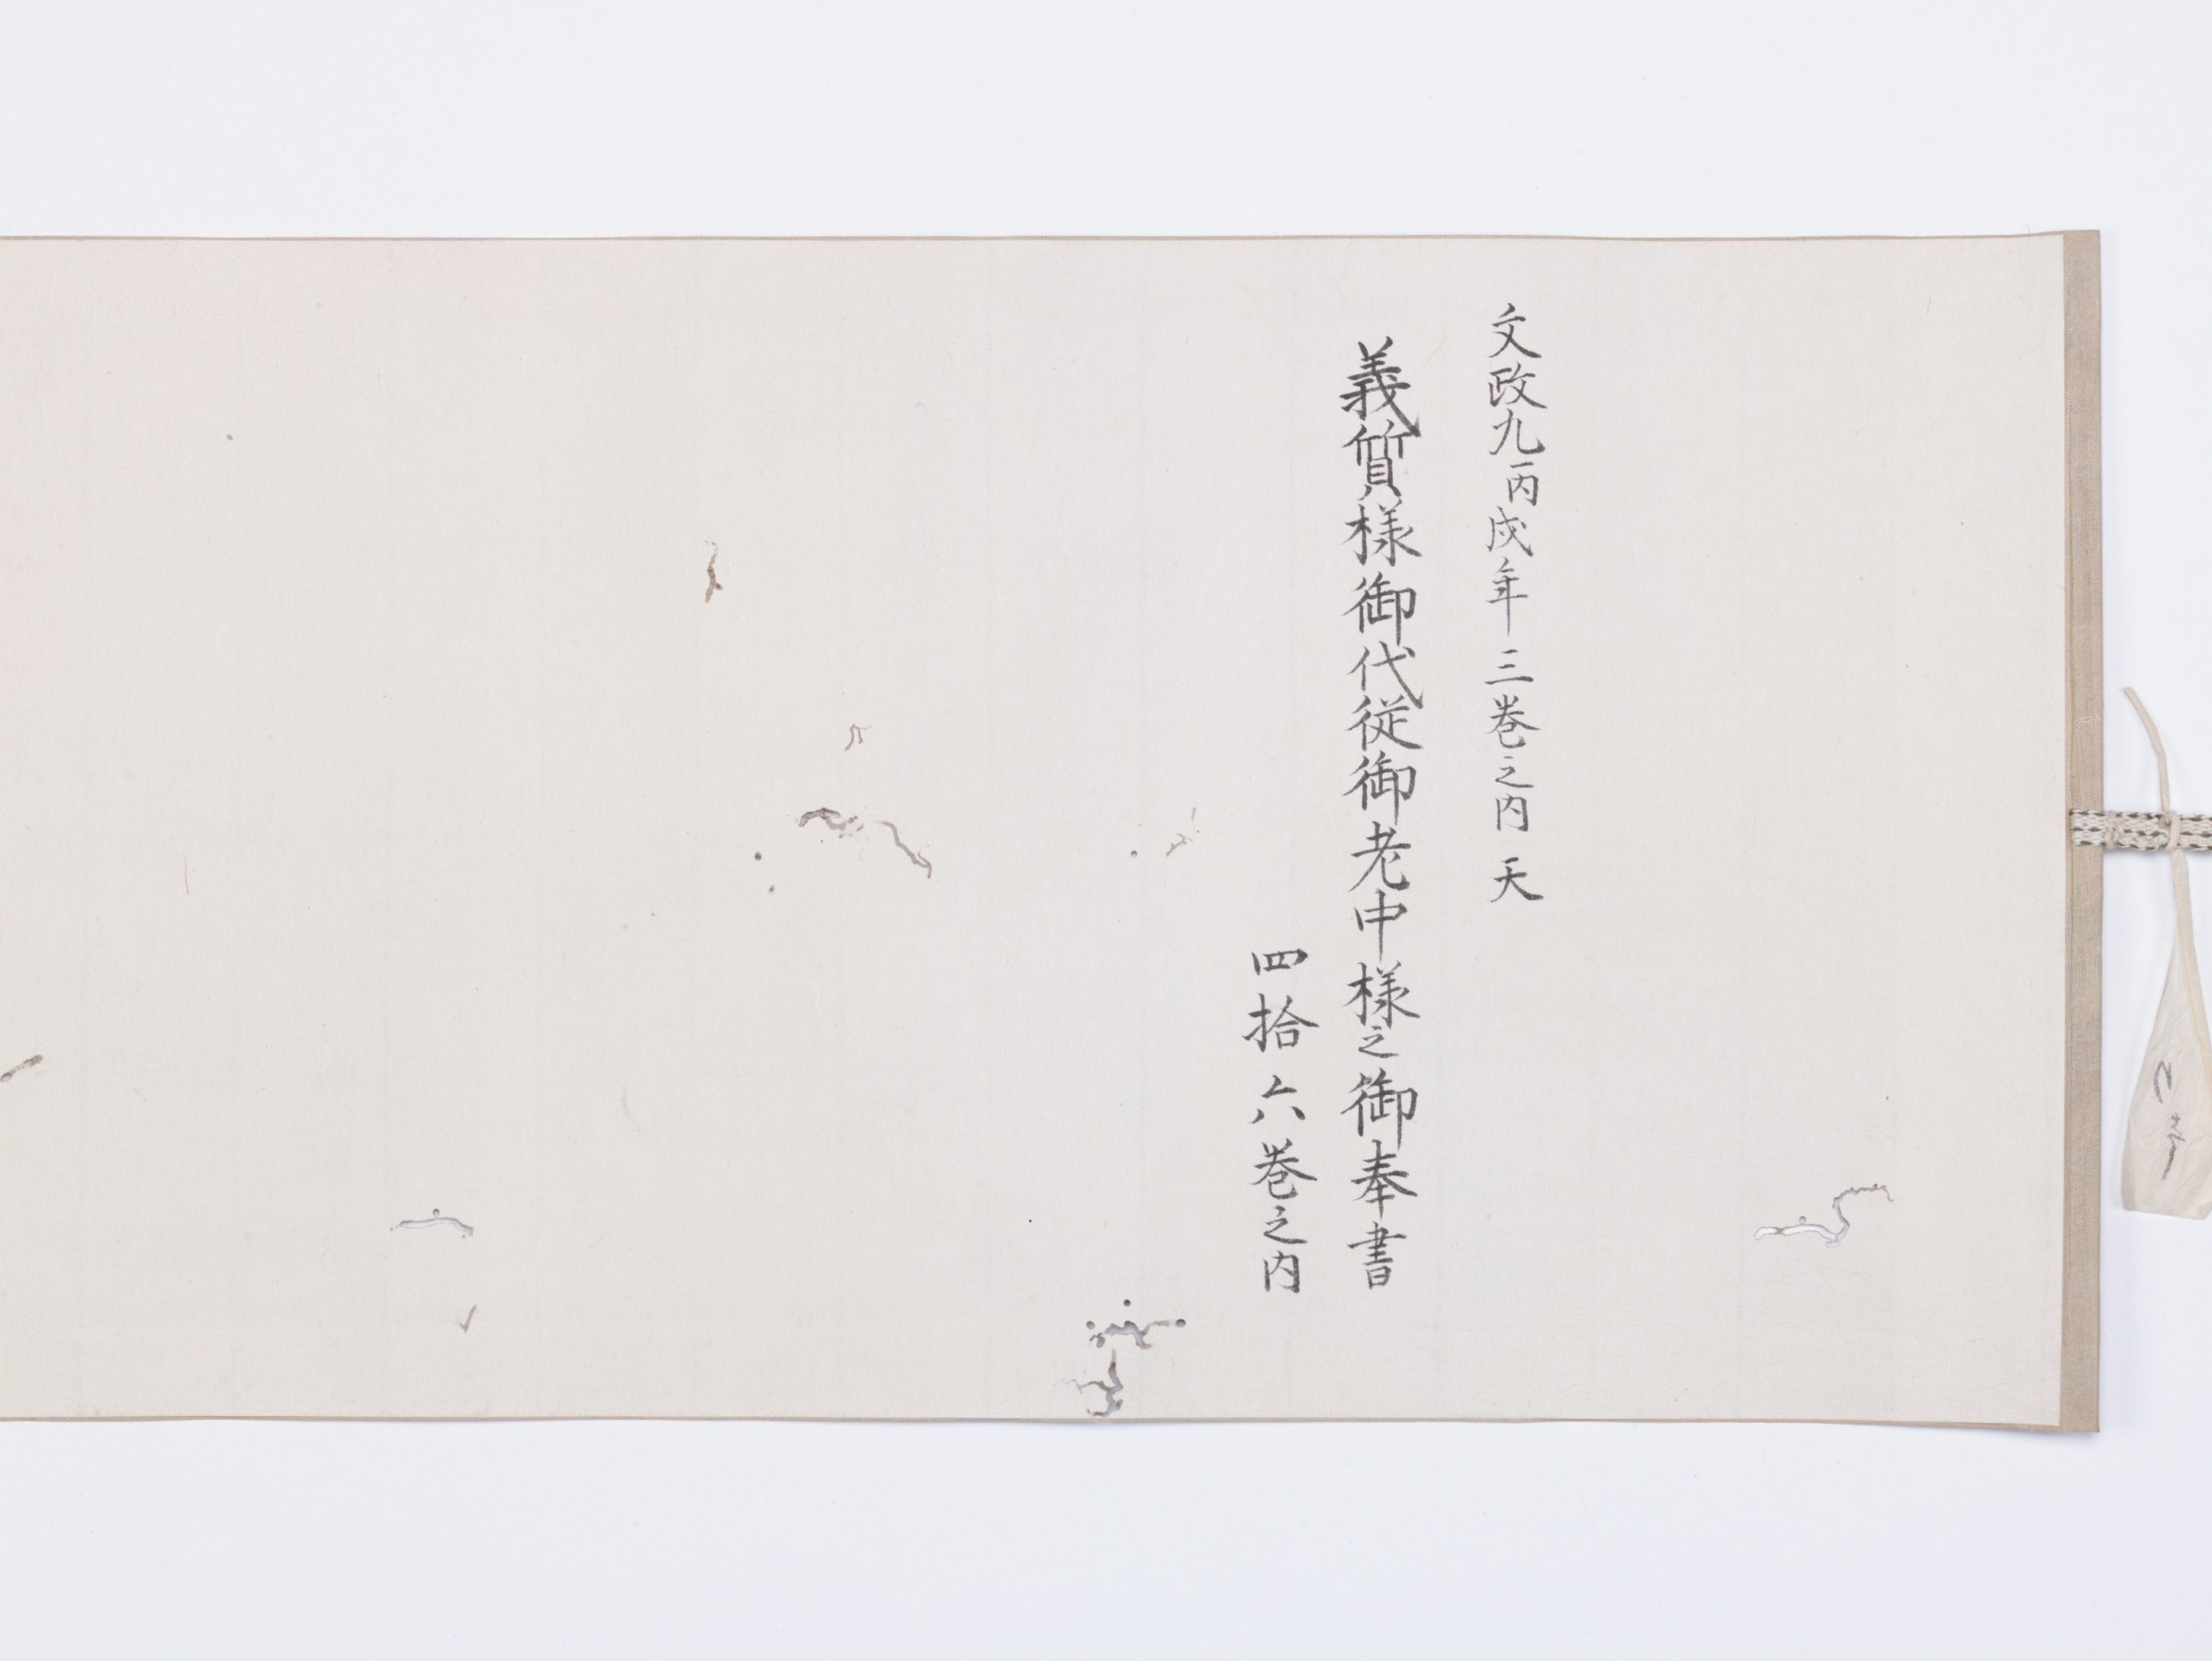 文政九丙戌年 三巻之内 天
義質様御代従御老中様之御奉書
四拾六巻之内